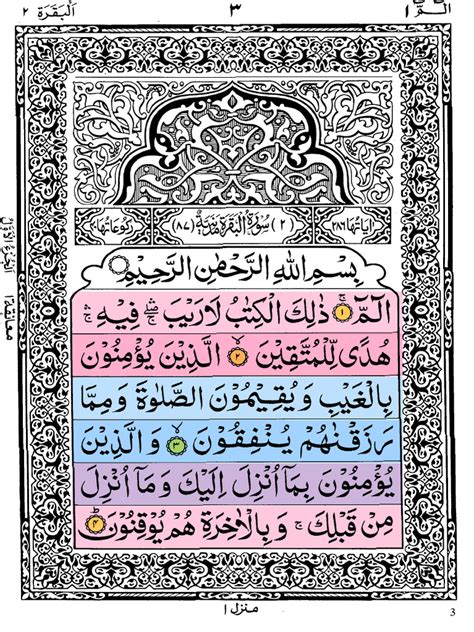 الٓمّٓ ١
٣
اَلْبَقَرَة ٢
اٰیَاتُهَا ٢٨٦
(٢) سُوْرَةُ الْبَقَرَةِ مَدَنِيَّةٌ (٨٧)
رُكُوْعَاتُهَا ٤٠
بِسْمِ اللّٰهِ الرَّحْمٰنِ الرَّحِيْمِ
الٓمّٓ ۚ ١ ذٰلِكَ الْكِتٰبُ لَا رَيْبَ ۛ فِيْهِ ۛ
هُدًى لِّلْمُتَّقِيْنَ ٢ الَّذِيْنَ يُؤْمِنُوْنَ
بِالْغَيْبِ وَيُقِيْمُوْنَ الصَّلٰوةَ وَمِمَّا
رَزَقْنٰهُمْ يُنْفِقُوْنَ ٣ وَالَّذِيْنَ
يُؤْمِنُوْنَ بِمَاۤ اُنْزِلَ اِلَيْكَ وَمَاۤ اُنْزِلَ
مِنْ قَبْلِكَ ۚ وَبِالْاٰخِرَةِ هُمْ يُوْقِنُوْنَ ٤
منزل ١
3